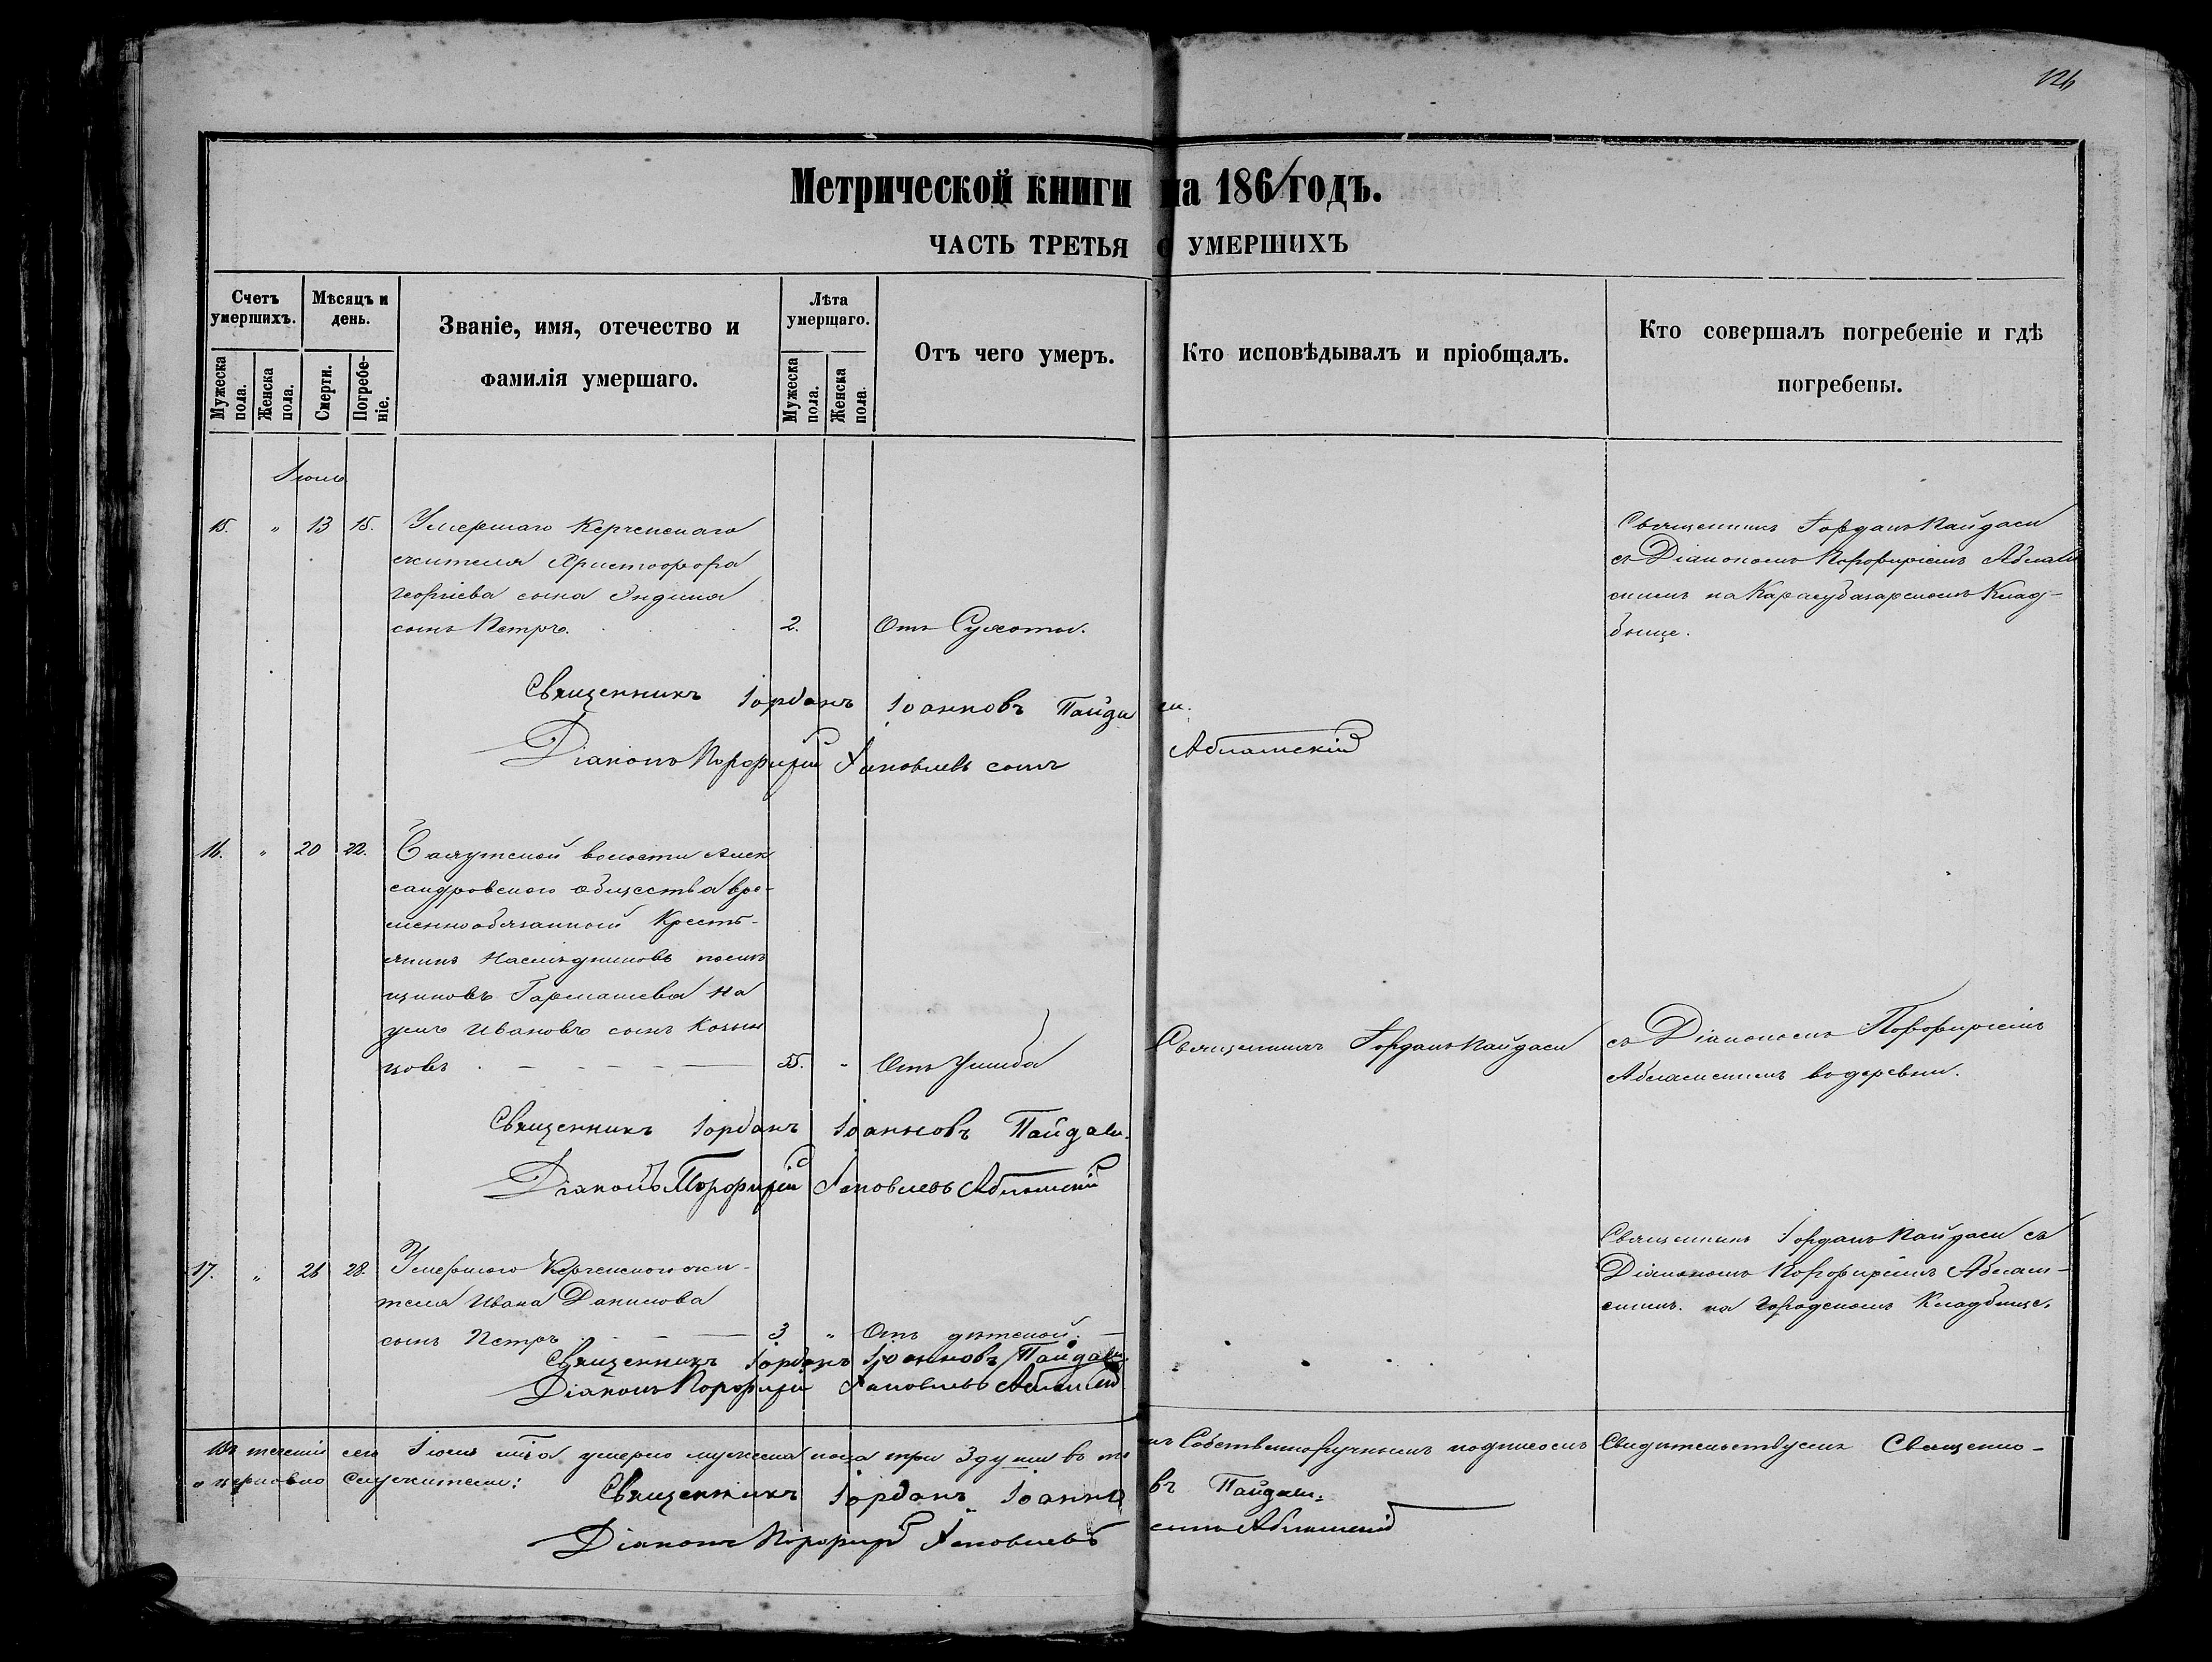 126
Метрической книги на 186/ годъ.
ЧАСТЬ ТРЕТЬЯ о УМЕРШИХЪ
Счетъ умершихъ.
Мужеска пола.
Женска пола.
Мѣсяцъ и день.
Смерти.
Погребе-
ніе.
Званіе, имя, отечество и
фамилія умершаго.
Лѣта умершаго.
Мужеска пола.
Женска пола.
Отъ чего умеръ.
Кто исповѣдывалъ и пріобщалъ.
Кто совершалъ погребеніе и гдѣ
погребены.
15. " 13 15. Умершаго Керченскаго
жителя Христофора
Георгіева сына
сынъ Петръ. 2. Отъ Сухоты.
Священникъ Іорданъ Пайдаси
съ Діакономъ Порфиріемъ
на Карасубазарскомъ Клад-
бище.
Священникъ Іорданъ Іоанновъ Пайдаси.
Діаконъ Порфирій Яковлевъ сынъ
16. " 20 22. волости Алек
сандровскаго общества вре-
меннообязанной Кресть-
янинъ Наслѣдниковъ помѣ
щиковъ На
умъ Ивановъ сынъ
цовъ 55. - Отъ Ушиба
Священникъ Іорданъ Пайдаси
съ Діакономъ Порфиріемъ
въ деревни.
Священникъ Іорданъ Іоанновъ Пайдаси.
Діаконъ Порфирій Яковлевъ
17. " 26 28. Умершаго Керченскаго жи-
теля Ивана Данилова
сынъ Петръ 3 " Отъ дѣтской.
Священникъ Іорданъ Пайдаси съ
Діакономъ Порфиріемъ
на Городскомъ Кладбище.
Священникъ Іорданъ Іоанновъ Пайдаси
Діаконъ Порфирій Яковлевъ
Въ теченіи сего умерло мужеска пола три 3 души въ Собственноручнымъ подписомъ Свидѣтельствуемъ Священно-
церковно служители:
Священникъ Іорданъ Іоанновъ Пайдаси.
Діаконъ Порфирій Яковлевъ сынъ